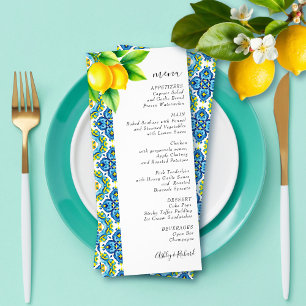 menu
APPETIZERS
Caprese Salad
and Garlic Bread
Prosecco Watermelon
MAIN
Baked Seabass with Fennel
and Steamed Vegetables
with Lemon Sauce
Chicken
with gorgonzola sauce,
Apple Chutney
and Roasted Potatoes
Pork Tenderloin
with Honey Garlic Sauce
and Roasted
Brussels Sprouts
DESSERT
Cake Pops
Sticky Toffee Pudding
Ice Cream Sandwiches
BEVERAGES
Open Bar
Champagne
Ashley & Richard